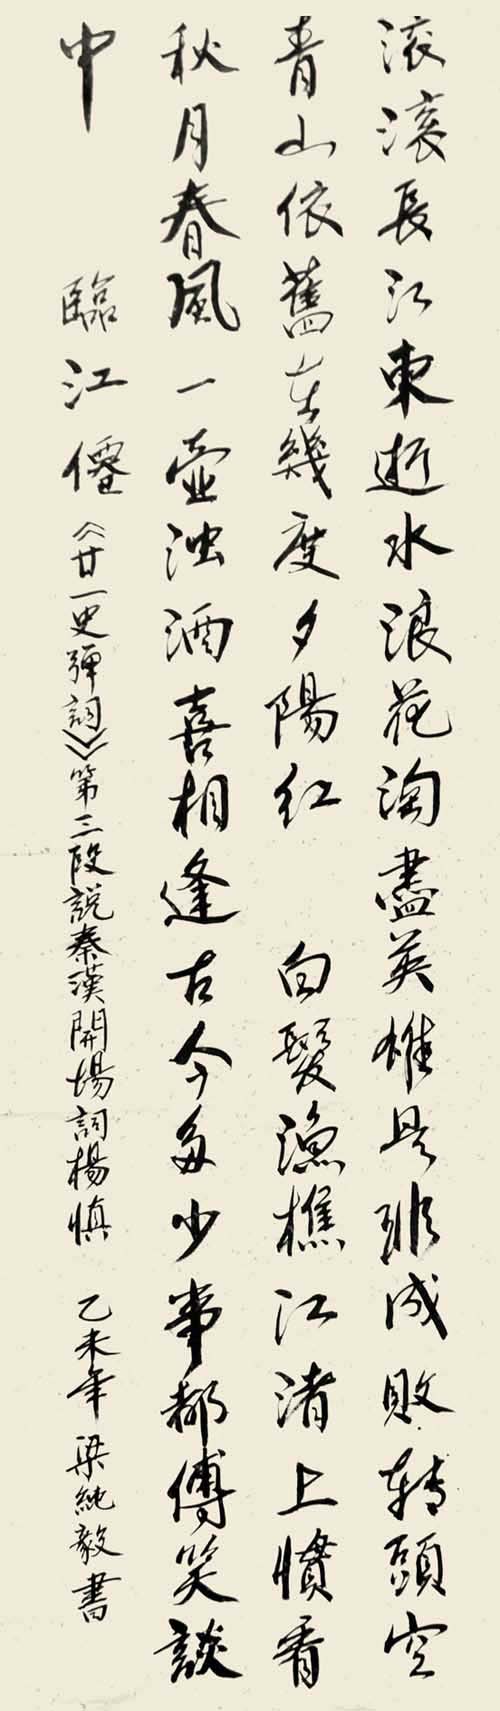 滚滚長江東逝水浪花淘盡英雄是非成敗轉頭空
青山依舊在幾度夕陽紅 白髮漁樵江渚上慣看
秋月春風一壺浊酒喜相逢古今多少事都傅笑談
中 臨江僊《廿一史彈詞》第三段説秦漢開場詞楊慎 乙未年 梁純毅書